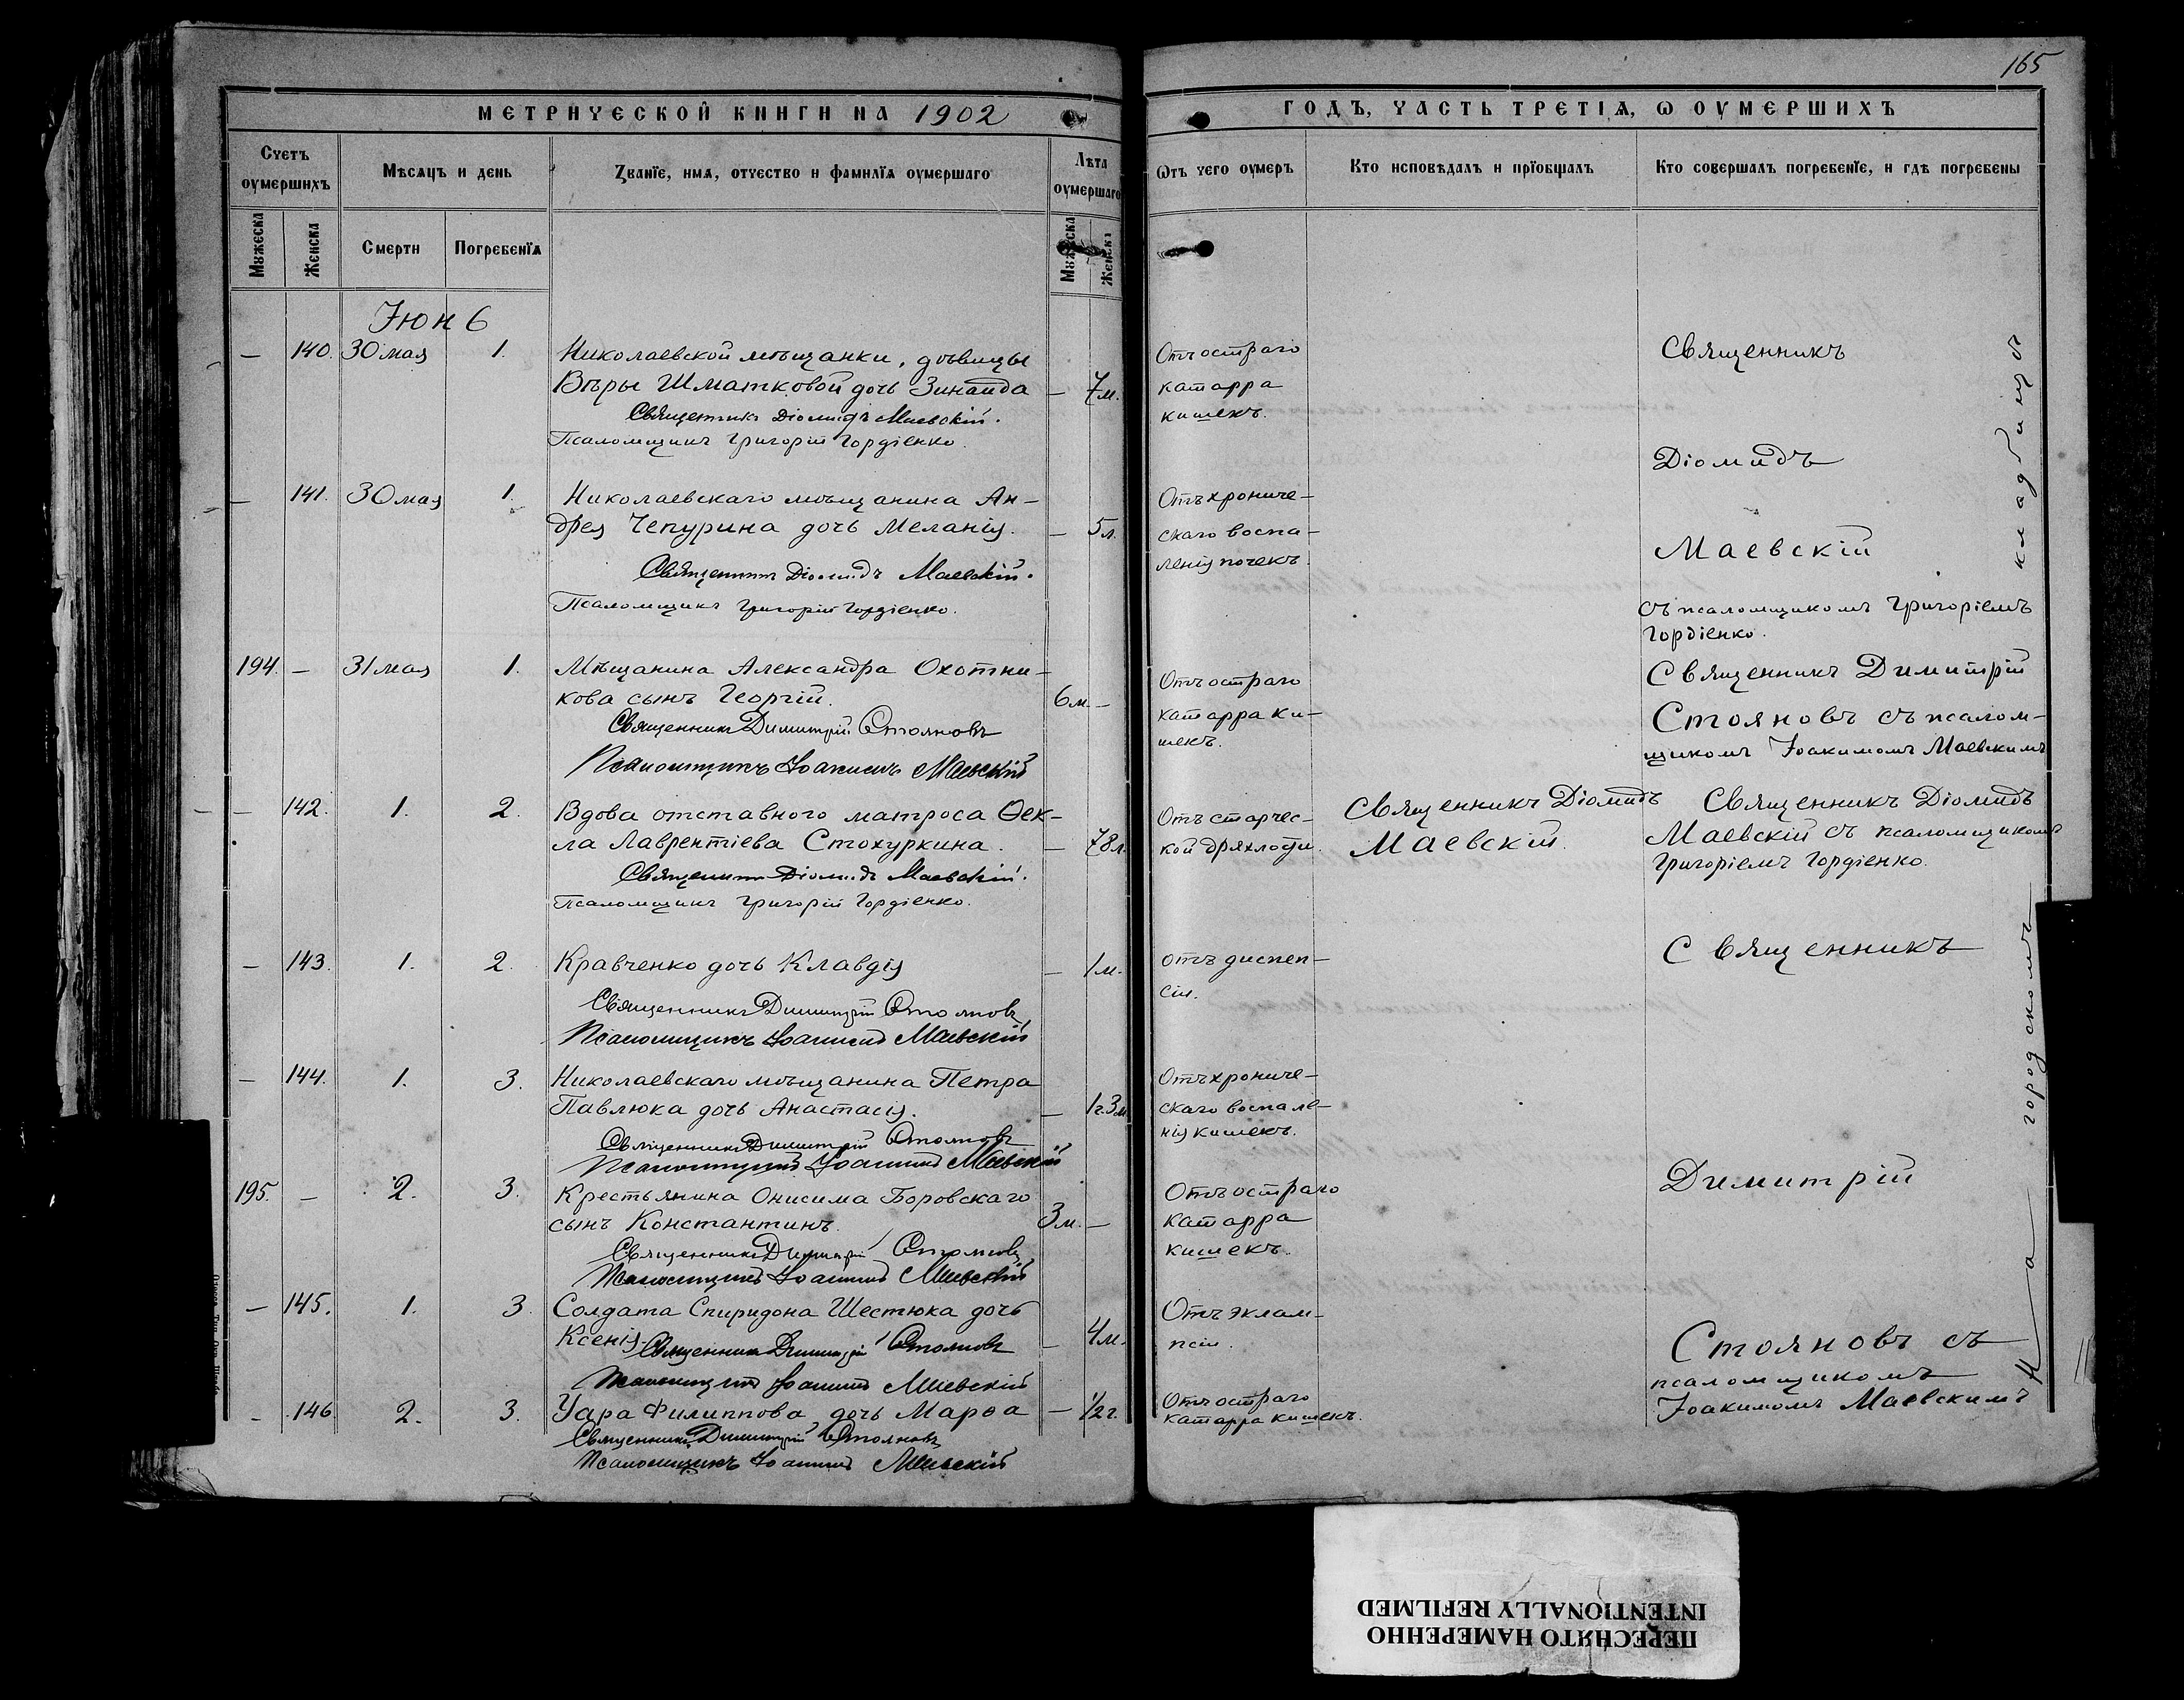 165
МЕТРИЧЕСКОЙ КНИГИ НА 1902
ГОДЪ, ЧАСТЬ ТРЕТІѦ, Ѡ ОУМЕРШИХЪ
Счетъ оумершихъ
Мѣсяцъ и день
Званїе, имѧ, отчество и фамилїѧ оумершаго
Лѣта оумершаго
Ѿтъ чего оумеръ
Кто исповѣдалъ и прїобщалъ
Кто совершалъ погребенїе, и гдѣ погребены
Мужеска
Женска
Смерти
Погребенїѧ
Мужеска
Женска
Іюнь
— 140. 30 мая 1. Николаевской мѣщанки, дѣвицы
Вѣры Шматковой дочь Зинаида — 7 м.
Священникъ Діомидъ Маевскій.
Псаломщикъ Григорій Гордіенко.
Отъ остраго
катарра
кишекъ.
Священникъ
Діомидъ
— 141. 30 мая 1. Николаевскаго мѣщанина Ан-
дрея Чепурина дочь Меланія. — 5 л.
Священникъ Діомидъ Маевскій.
Псаломщикъ Григорій Гордіенко.
Отъ хрониче-
скаго воспа-
ленія почекъ.
Маевскій
съ псаломщикомъ Григоріемъ
Гордіенко.
194. — 31 мая 1. Мѣщанина Александра Охотни-
кова сынъ Георгій. 6 м. —
Священникъ Димитрій Стояновъ
Псаломщикъ Іоакимъ Маевскій
Отъ остраго
катарра ки-
шекъ.
Священникъ Димитрій
Стояновъ съ псалом-
щикомъ Іоакимомъ Маевскимъ
— 142. 1. 2. Вдова отставного матроса Ѳек-
ла Лаврентіева Стохуркина. — 78 л.
Священникъ Діомидъ Маевскій.
Псаломщикъ Григорій Гордіенко.
Отъ старчес-
кой дряхлости.
Священникъ Діомидъ
Маевскій.
Священникъ Діомидъ
Маевскій съ псаломщикомъ
Григоріемъ Гордіенко.
— 143. 1. 2. Кравченко дочь Клавдія — 1 м.
Священникъ Димитрій Стояновъ
Псаломщикъ Іоакимъ Маевскій
отъ диспеп-
сіи.
Священникъ
— 144. 1. 3. Николаевскаго мѣщанина Петра
Павлюка дочь Анастасія. — 1 г. 3 м.
Священникъ Димитрій Стояновъ
Псаломщикъ Іоакимъ Маевскій
Отъ хрониче-
скаго воспале-
нія кишекъ.
195. — 2. 3. Крестьянина Онисима Боровскаго
сынъ Константинъ. 3 м. —
Священникъ Димитрій Стояновъ
Псаломщикъ Іоакимъ Маевскій
Отъ остраго
катарра
кишекъ.
Димитрій
— 145. 1. 3. Солдата Спиридона Шестюка дочь
Ксенія. — 4 м.
Священникъ Димитрій Стояновъ
Псаломщикъ Іоакимъ Маевскій
Отъ эклам-
псіи.
Стояновъ съ
псаломщикомъ
Іоакимомъ Маевскимъ
— 146 2. 3. Уара Филиппова, дочь Марѳа — 1/2 г.
Священникъ Димитрій Стояновъ
Псаломщикъ Іоакимъ Маевскій
Отъ остраго
катарра кишекъ.
На городскомъ кладбищѣ
ПЕРЕСНЯТО НАМЕРЕННО
INTENTIONALLY REFILMED